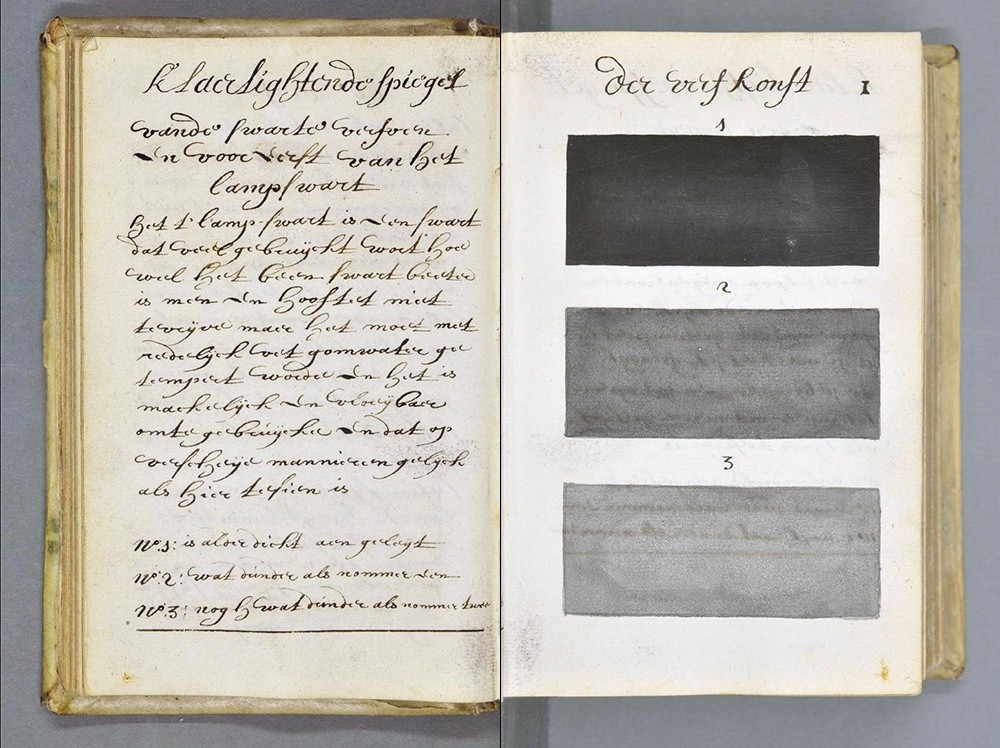 Klaerlightende spiegel
vande swarte verfven
En voor Eerst van het
lampswart
het t' lamp-swart is Een swart
dat veel gebruijckt wort hoe
wel het been swart beeter
is men En hooft et niet
te vrijve maer het moet met
redelijck vet gomwater ge
tempert worde En het is
mackelijck En vloeijbaer
omte gebruijcke En dat op
verscheÿe mannieren gelijck
als hier tesien is
N°.1: is alder dickt aen geleijt
N°.2: wat dunder als nommer een
N°.3: nog h wat dunder als nommer twee
der verf konst 1
1
2
3